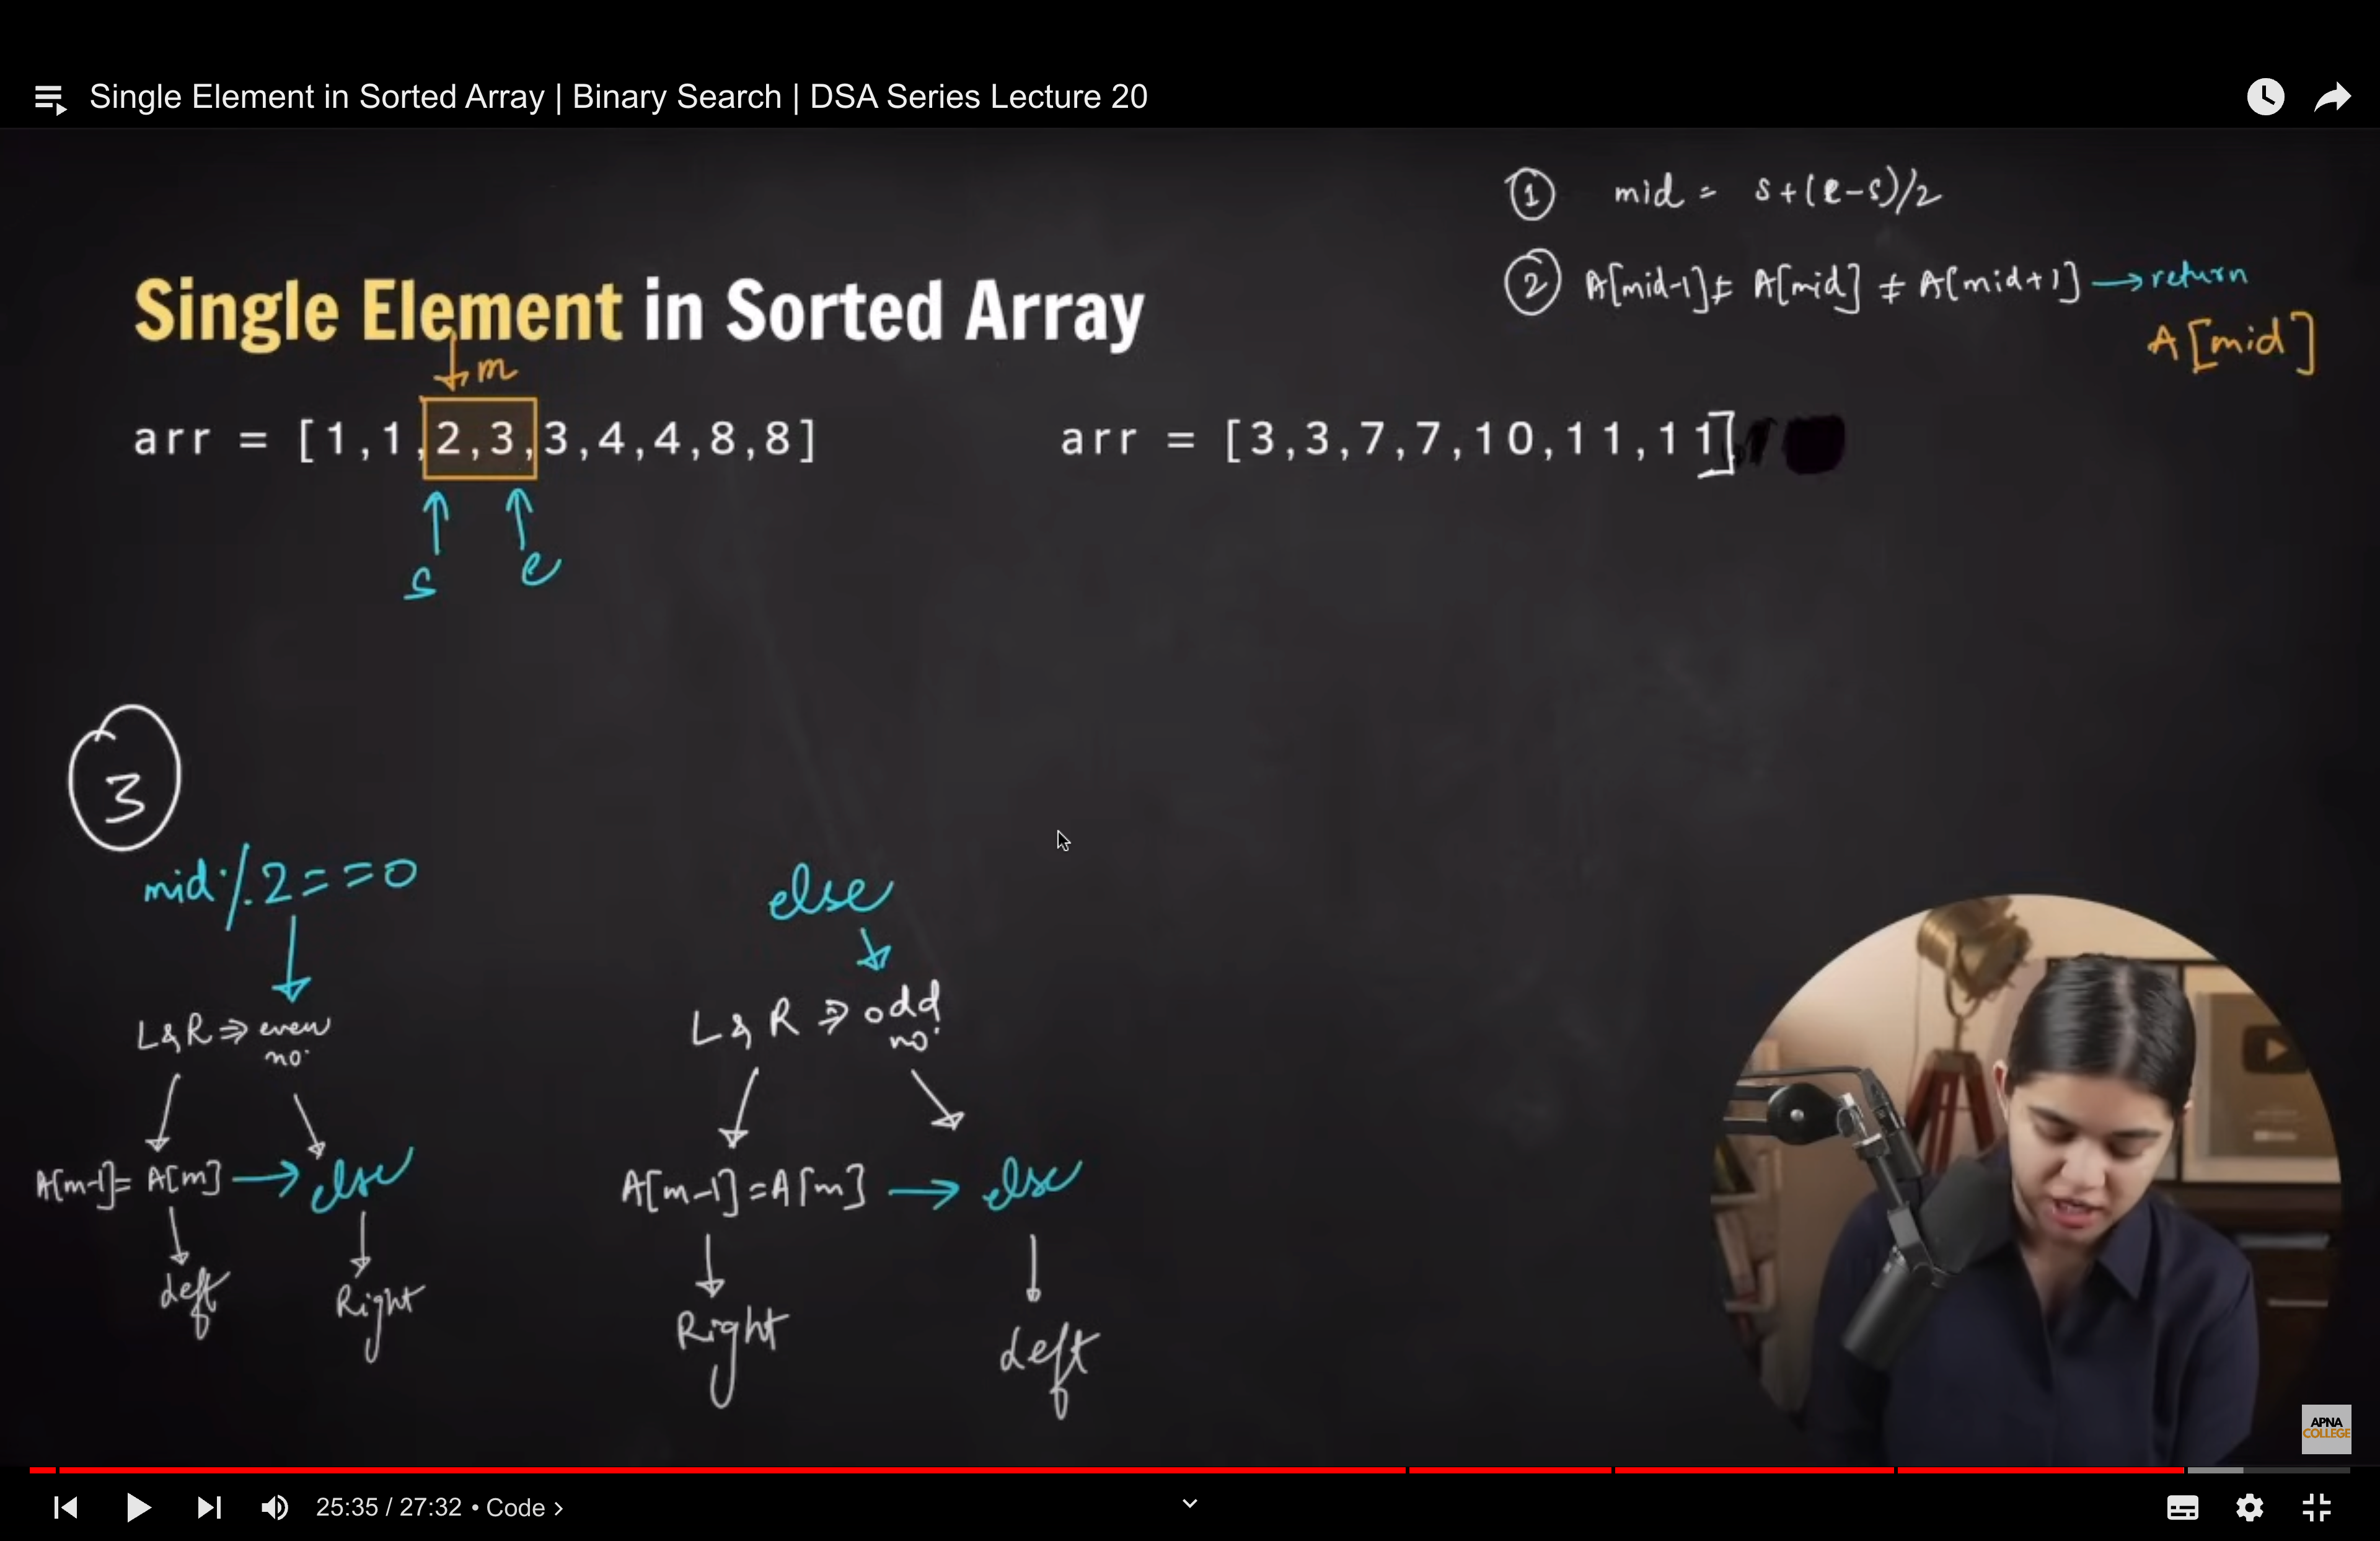 Single Element in Sorted Array | Binary Search | DSA Series Lecture 20
① mid = s+(e-s)/2
② A[mid-1] ≠ A[mid] ≠ A[mid+1] → return
A[mid]
Single Element in Sorted Array
m
arr = [1,1,2,3,3,4,4,8,8]
arr = [3,3,7,7,10,11,11]
s
e
3
mid % 2 == 0
else
L & R ⇒ even no.
L & R ⇒ odd no.
A[m-1] = A[m] → else
A[m-1] = A[m] → else
Left
Right
Right
Left
APNA
COLLEGE
25:35 / 27:32 • Code ›